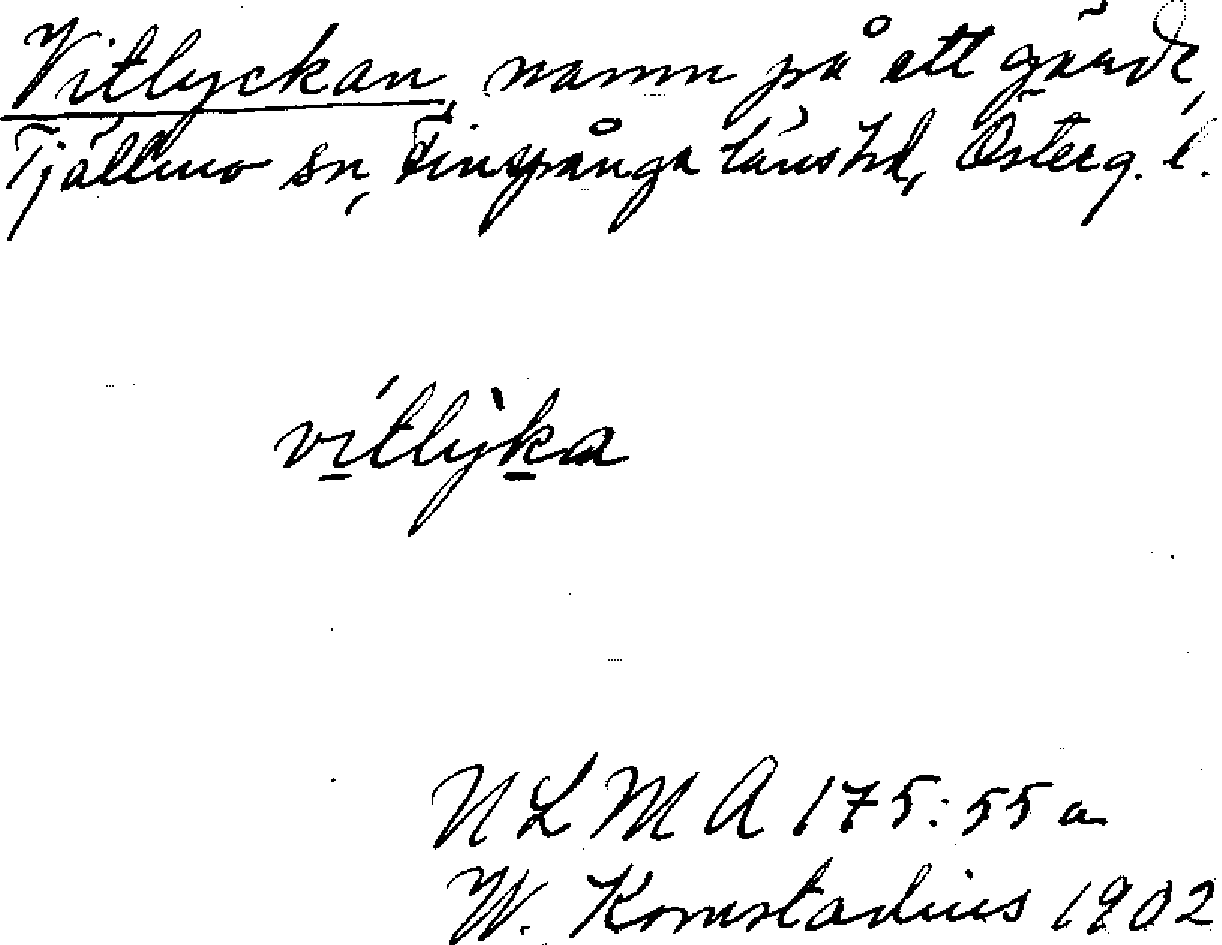 Vitlyckan, namn på ett gärde,
Tjällmo sn, Finspånga länshd, Österg. l.
ví̲tlỳk̲a
N L M A 175:55 a
W. Kornstadius 1902